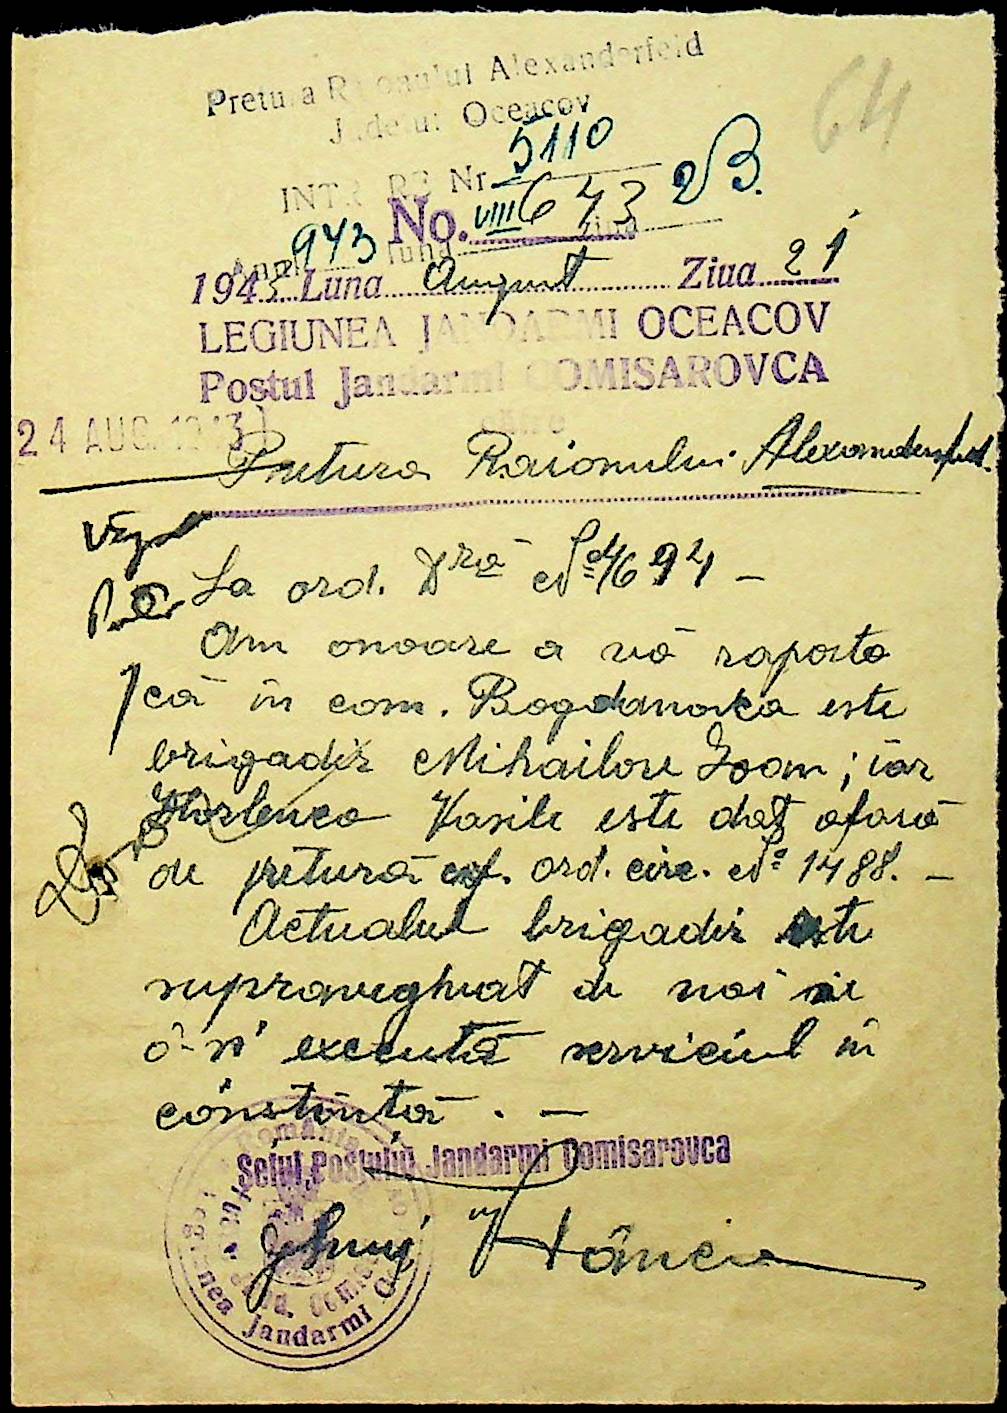 Pretura Raionului Alexanderfeld
Județul Oceacov
64
INTRARE Nr. 5110
No. 643
943 VIII 23.
Anul luna ziua
1943 Luna August Ziua 21
LEGIUNEA JANDARMI OCEACOV
Postul Jandarmi COMISAROVCA
24 AUG. 1943
către
Pretura Raionului Alexanderfeld.
La ord. Dvs No 4694 –
Am onoare a vă raporta
că în com. Bogdanovca este
brigadir Mihailov Ioan; iar
Vasile este dat afară
de pretură cf. ord. circ. No 1488. –
Actualul brigadir este
supravegheat de noi
a-și execută serviciul în
conștință. –
Șeful Postului Jandarmi Comisarovca
România
Legiunea Jandarmi